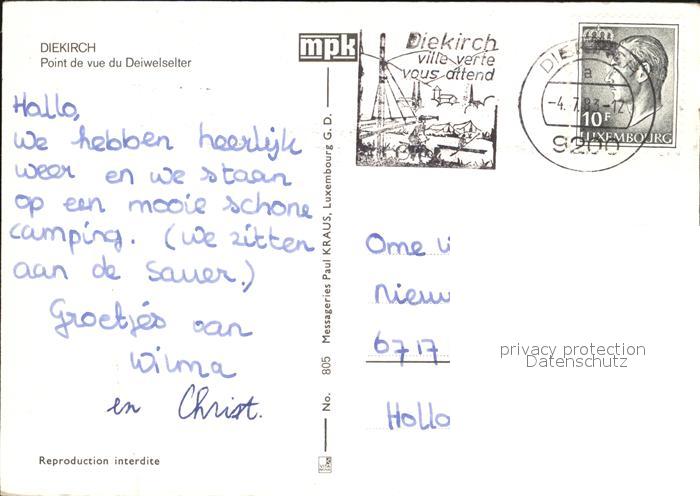 DIEKIRCH
Point de vue du Deiwelselter
Hallo,
We hebben heerlijk
weer en we staan
op een mooie schone
camping. (We zitten
aan de Sauer.)
Groetjes van
Wilma
en Christ.
Reproduction interdite
mpk
No. 805 Messageries Paul KRAUS, Luxembourg G. D.
Diekirch
ville verte
vous attend
a
-4.7.83-12
9200
10F
LUXEMBOURG
Ome
Nieuw
6717
Hollo
privacy protection
Datenschutz